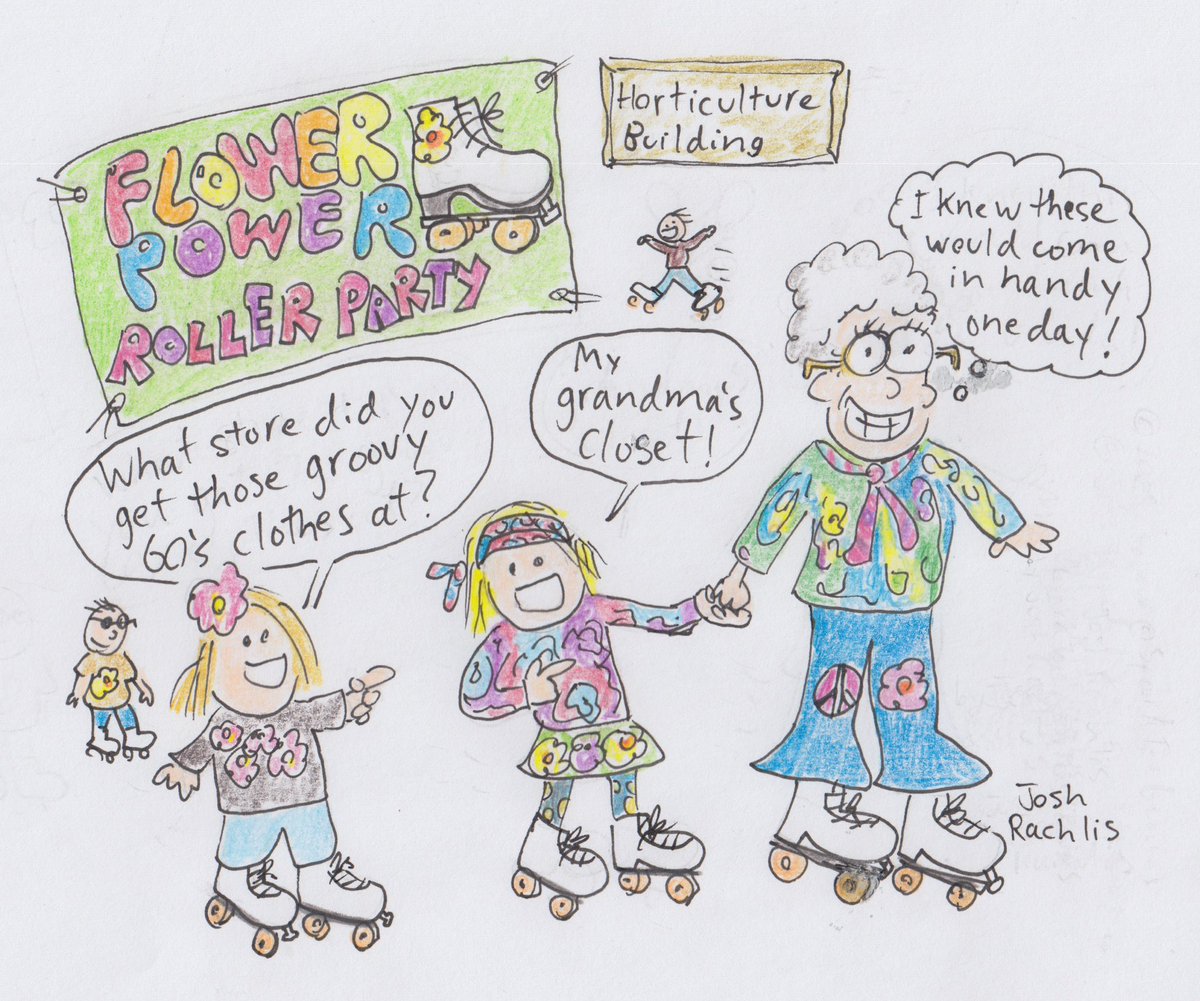 FLOWER
POWER
ROLLER PARTY
Horticulture
Building
I knew these
would come
in handy
one day!
My
grandma's
closet!
What store did you
get those groovy
60's clothes at?
Josh
Rachlis